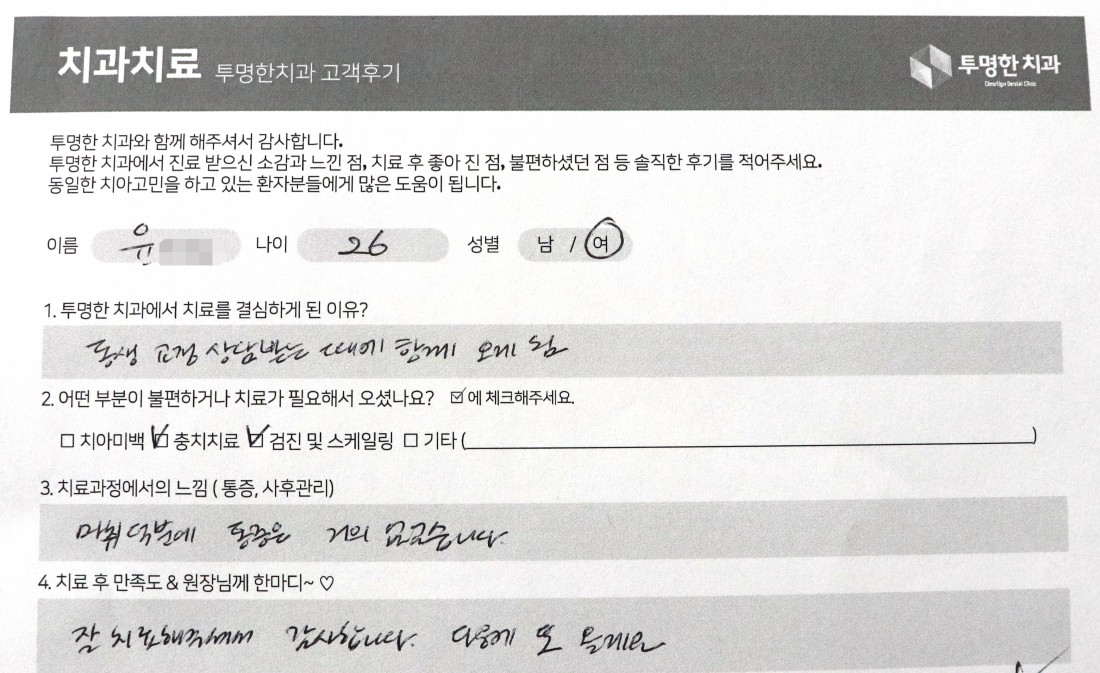 치과치료 투명한치과 고객후기
투명한 치과
투명한 치과와 함께 해주셔서 감사합니다.
투명한 치과에서 진료 받으신 소감과 느낀 점, 치료 후 좋아 진 점, 불편하셨던 점 등 솔직한 후기를 적어주세요.
동일한 치아고민을 하고 있는 환자분들에게 많은 도움이 됩니다.
이름 윤 나이 26 성별 남 / 여
1. 투명한 치과에서 치료를 결심하게 된 이유?
동생 교정 상담받는 때에 함께 오게 됨
2. 어떤 부분이 불편하거나 치료가 필요해서 오셨나요? ☑에 체크해주세요.
☐ 치아미백 ☑ 충치치료 ☑ 검진 및 스케일링 ☐ 기타 ( )
3. 치료과정에서의 느낌 ( 통증, 사후관리)
마취덕분에 통증은 거의
4. 치료 후 만족도 & 원장님께 한마디~ ♡
잘 치료해주셔서 감사합니다. 다음에 또 올게요